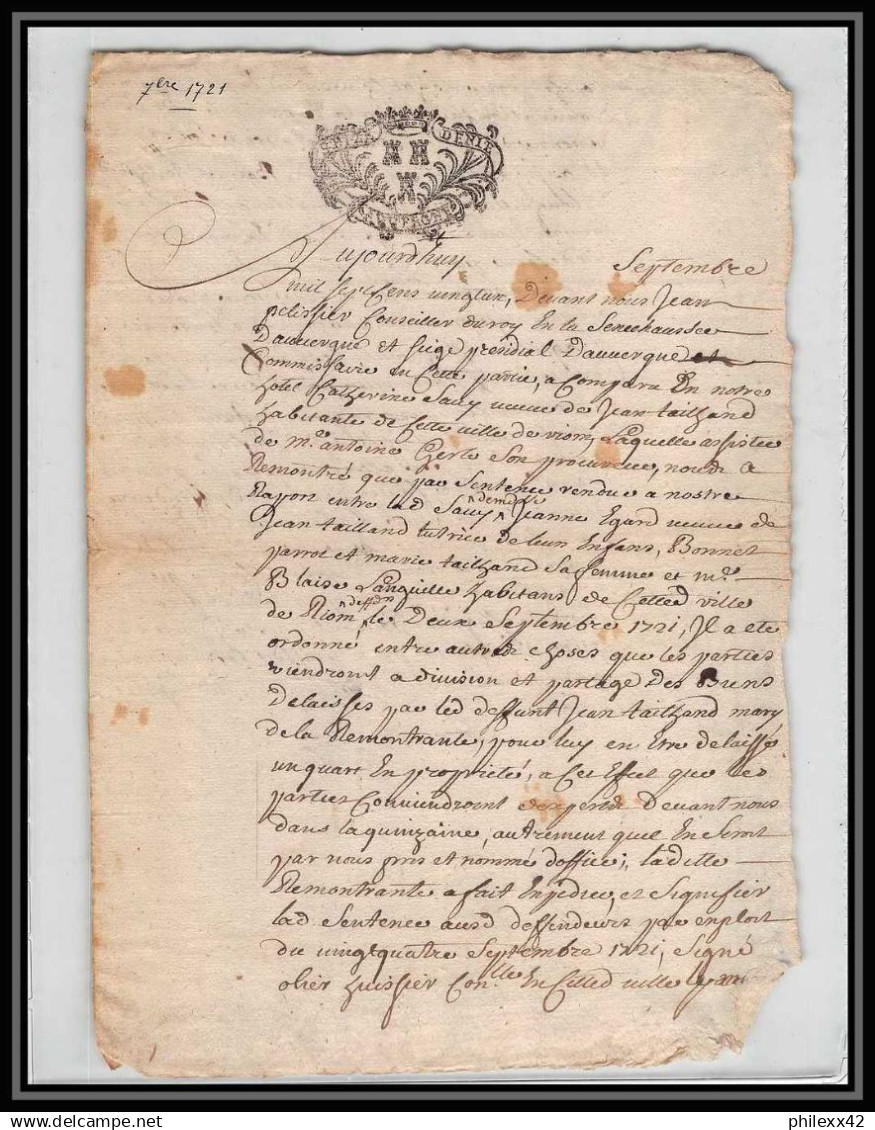 7bre 1721
DENIE
Aujourdhuy Septembre
mil sept Cens vingt un, Devant nous Jean
pelissier Conseiller du roy En la Senechaussée
Dauvergne et siege presidial Dauvergne et
Commissaire en Cette partie, a Comparu En notre
hotel Catherine Sauy veuve de Jean tailhand
habitante de Cette ville de riom, Laquelle assistée
de me antoine Gerle Son procureur, nous a
Remontré que par Sentence rendue a nostre
Raport entre lad Sauy demdse Jeanne Egard veuve de
Jean tailland tutrice de leur Enfans, Bonnet
parrot et marie tailhand Sa femme et me
Blaise Languille habitans de Cetted ville
de Riom deffdrs le Deux Septembre 1721, Il a eté
ordonné entre autres choses que les parties
viendront a division et partage Des Biens
Delaissés par led deffunt Jean tailhand mary
de la Remontrante, pour luy en Etre delaissé
un quart En proprieté, a Cet Effet que les
parties Conviendront dexperts Devant nous
dans la quinzaine, autrement quil En Seroit
par nous pris et nommé doffice; laditte
Remontrante a fait Expedier, et Signifier
lad Sentence ausd deffendeurs par exploit
du vingt quatre Septembre 1721, Signé
olier huissier Conlle En Cetted ville
philexx42